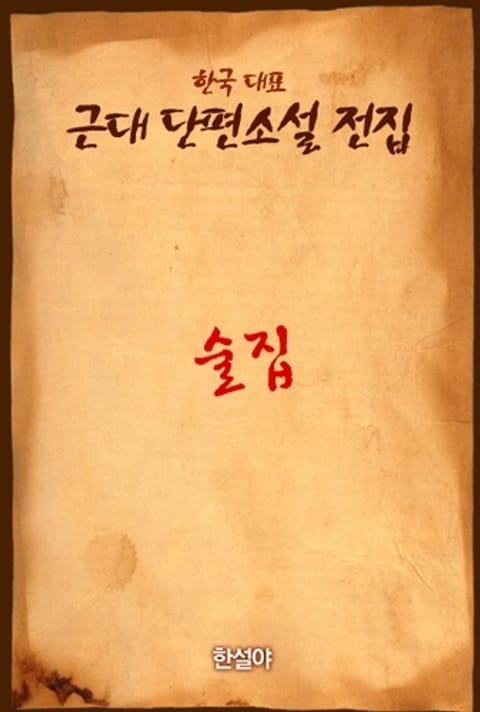 한국 대표
근대 단편소설 전집
술집
한설야